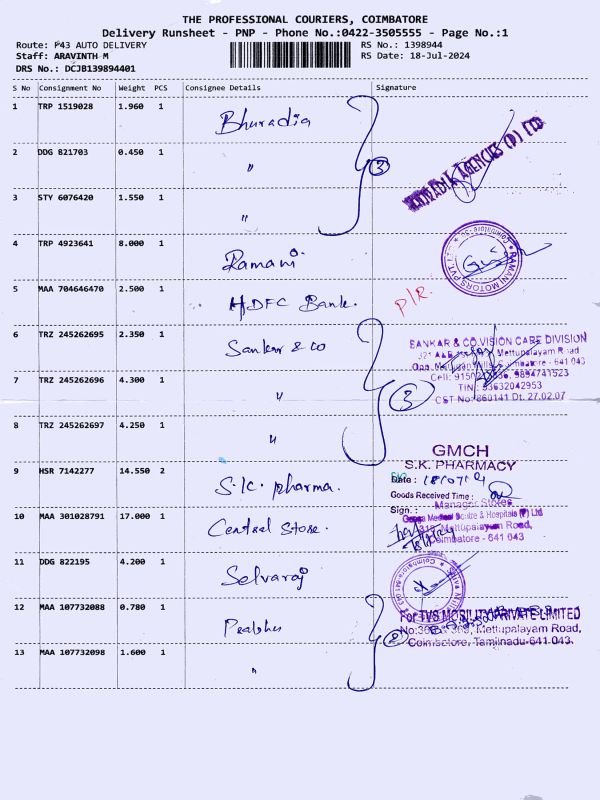 THE PROFESSIONAL COURIERS, COIMBATORE
Delivery Runsheet - PNP - Phone No.:0422-3505555 - Page No.:1
Route: P43 AUTO DELIVERY
RS No.: 1398944
Staff: ARAVINTH M
RS Date: 18-Jul-2024
DRS No.: DCJB139894401
S No Consignment No Weight PCS Consignee Details Signature
1 TRP 1519028 1.960 1 Bhuradia
AGENCIES (P) LTD
2 DDG 821703 0.450 1 "
3
3 STY 6076420 1.550 1 "
4 TRP 4923641 8.000 1 Ramani
RAMANI MOTORS PVT
5 MAA 704646470 2.500 1 HDFC Bank.
P/R.
6 TRZ 245262695 2.350 1 Sankar & co
SANKAR & CO.VISION CARE DIVISION
Mettupalayam Road
Coimbatore - 641 043
7 TRZ 245262696 4.300 1 "
9894741523
TIN: 33632042953
3
CST No:860141 Dt. 27.02.07
8 TRZ 245262697 4.250 1 "
GMCH
S.K. PHARMACY
9 HSR 7142277 14.550 2 S.K. pharma.
Date :
Goods Received Time :
Manager Stores
Sign. :
10 MAA 301028791 17.000 1 Central Store.
Medical Centre & Hospitals (P) Ltd
Mettupalayam Road,
Coimbatore - 641 043
11 DDG 822195 4.200 1 Selvaraj
12 MAA 107732088 0.780 1 Prabhu
For TVS MOBILITY PRIVATE LIMITED
Mettupalayam Road,
Coimbatore, Tamilnadu-641 043.
13 MAA 107732098 1.600 1 "